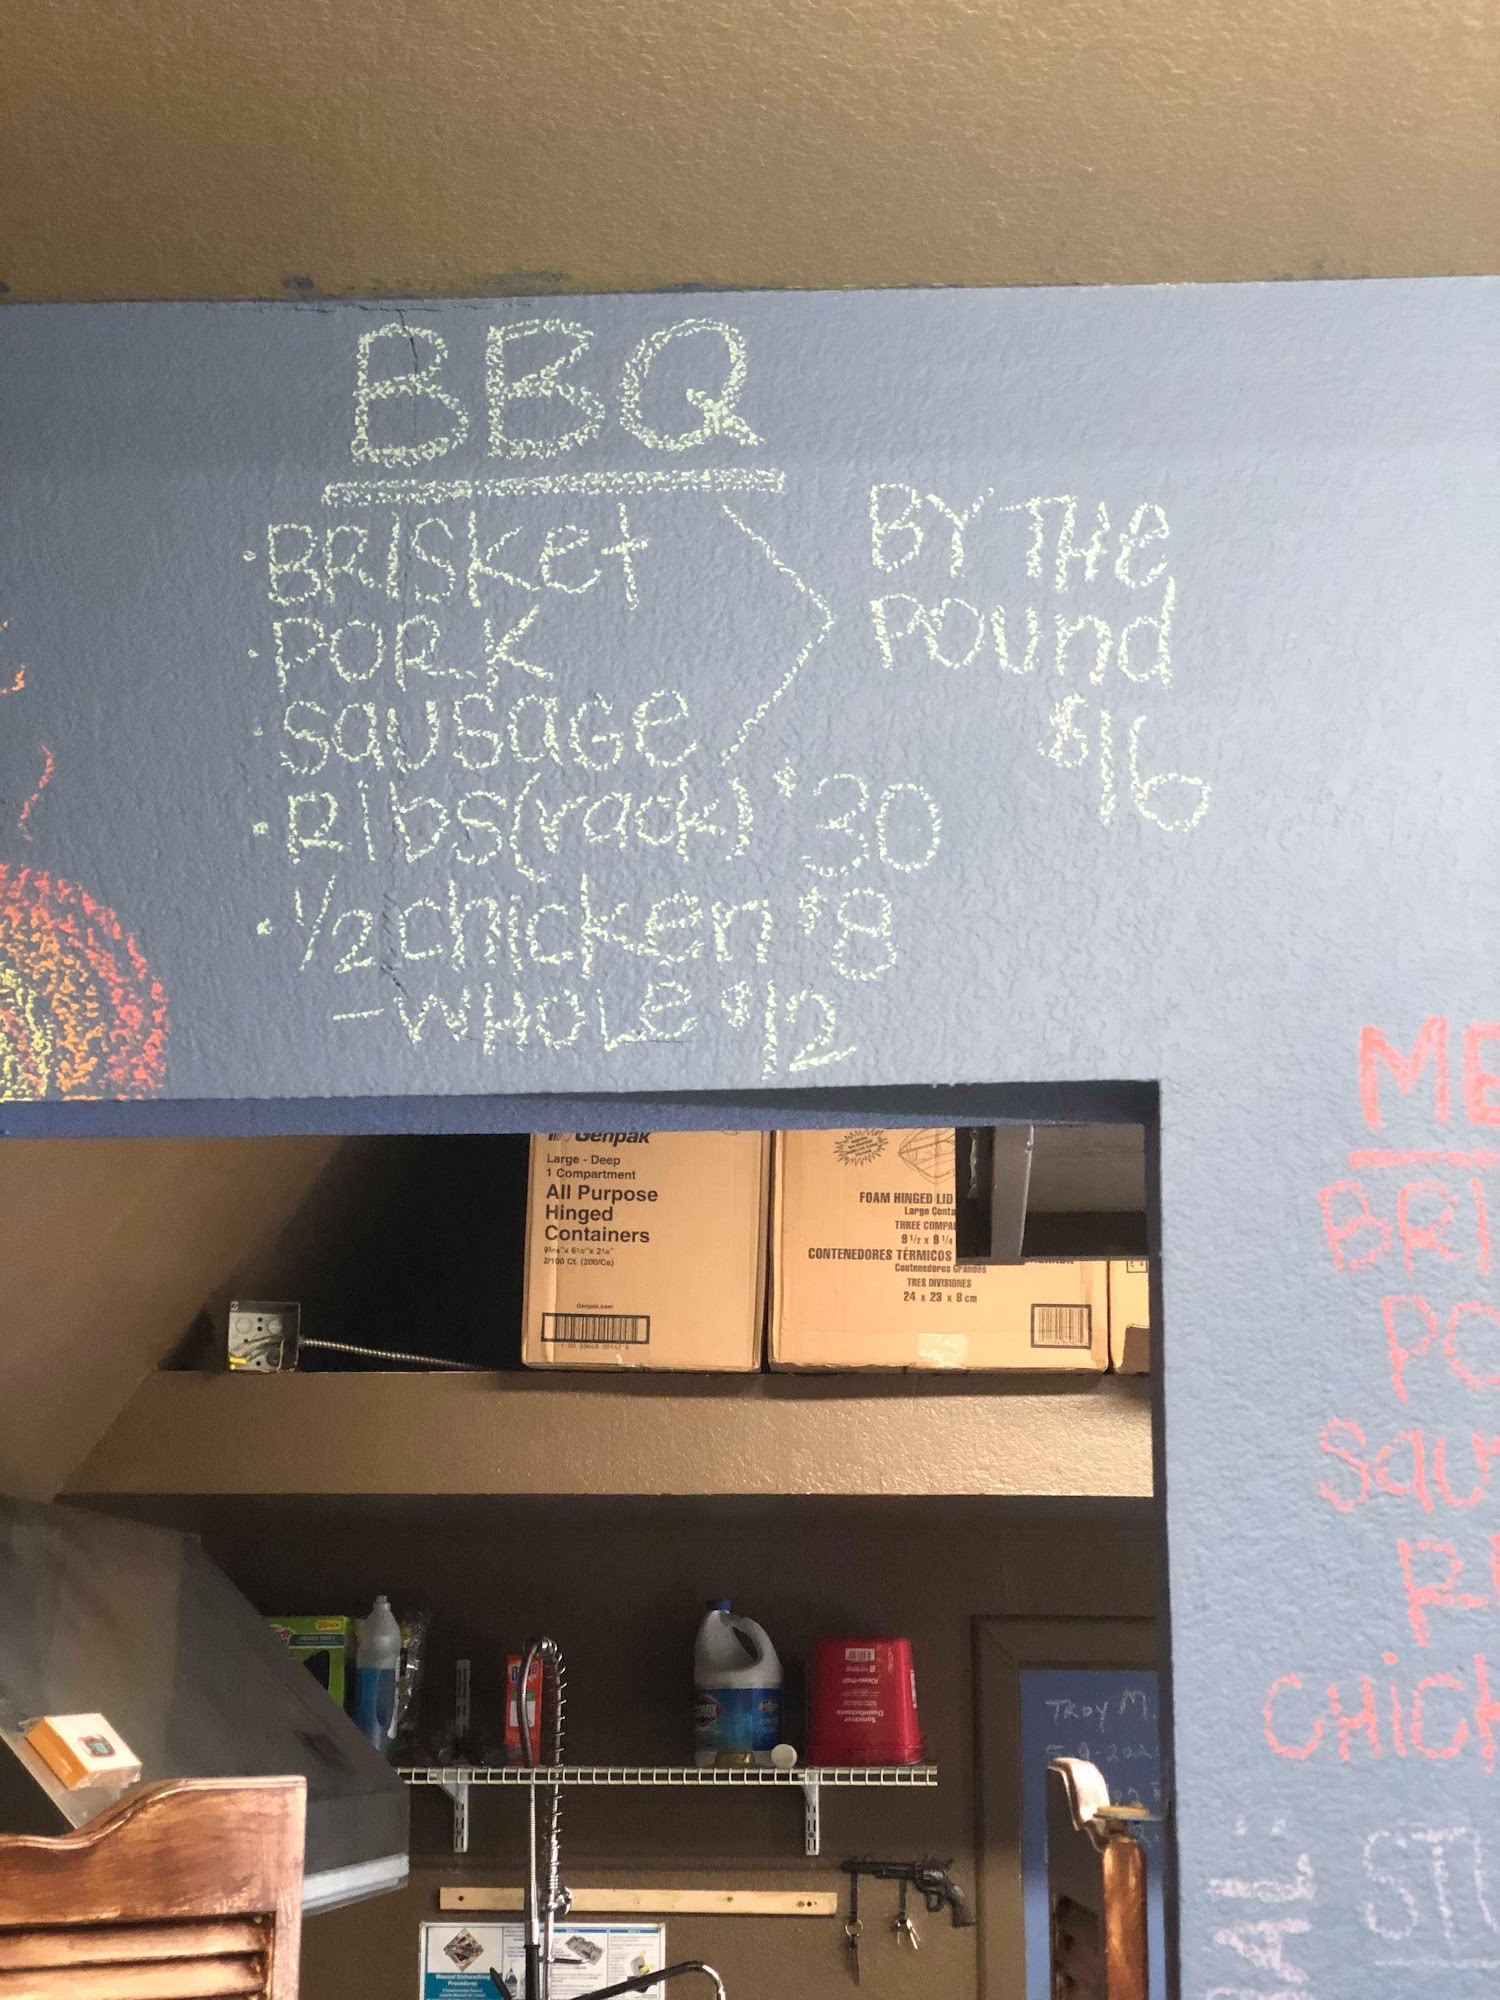 BBQ
• BRISKet
• PORK
• SausaGe
BY THe
POUnd
$16
• RIbs (rack) $30
• 1/2 chicken $8
- WHOLe $12
Genpak
Large - Deep
1 Compartment
All Purpose
Hinged
Containers
2/100 Ct. (200/Cs)
Genpak.com
FOAM HINGED LID
Large Conta
THREE COMPA
9 1/2 x 9 1/4
CONTENEDORES TÉRMICOS
Contenedores Grandes
TRES DIVISIONES
24 x 23 x 8 cm
ME
BRI
PO
Sau
R
CHiCK
TROY M.
Manual Dishwashing
Procedures